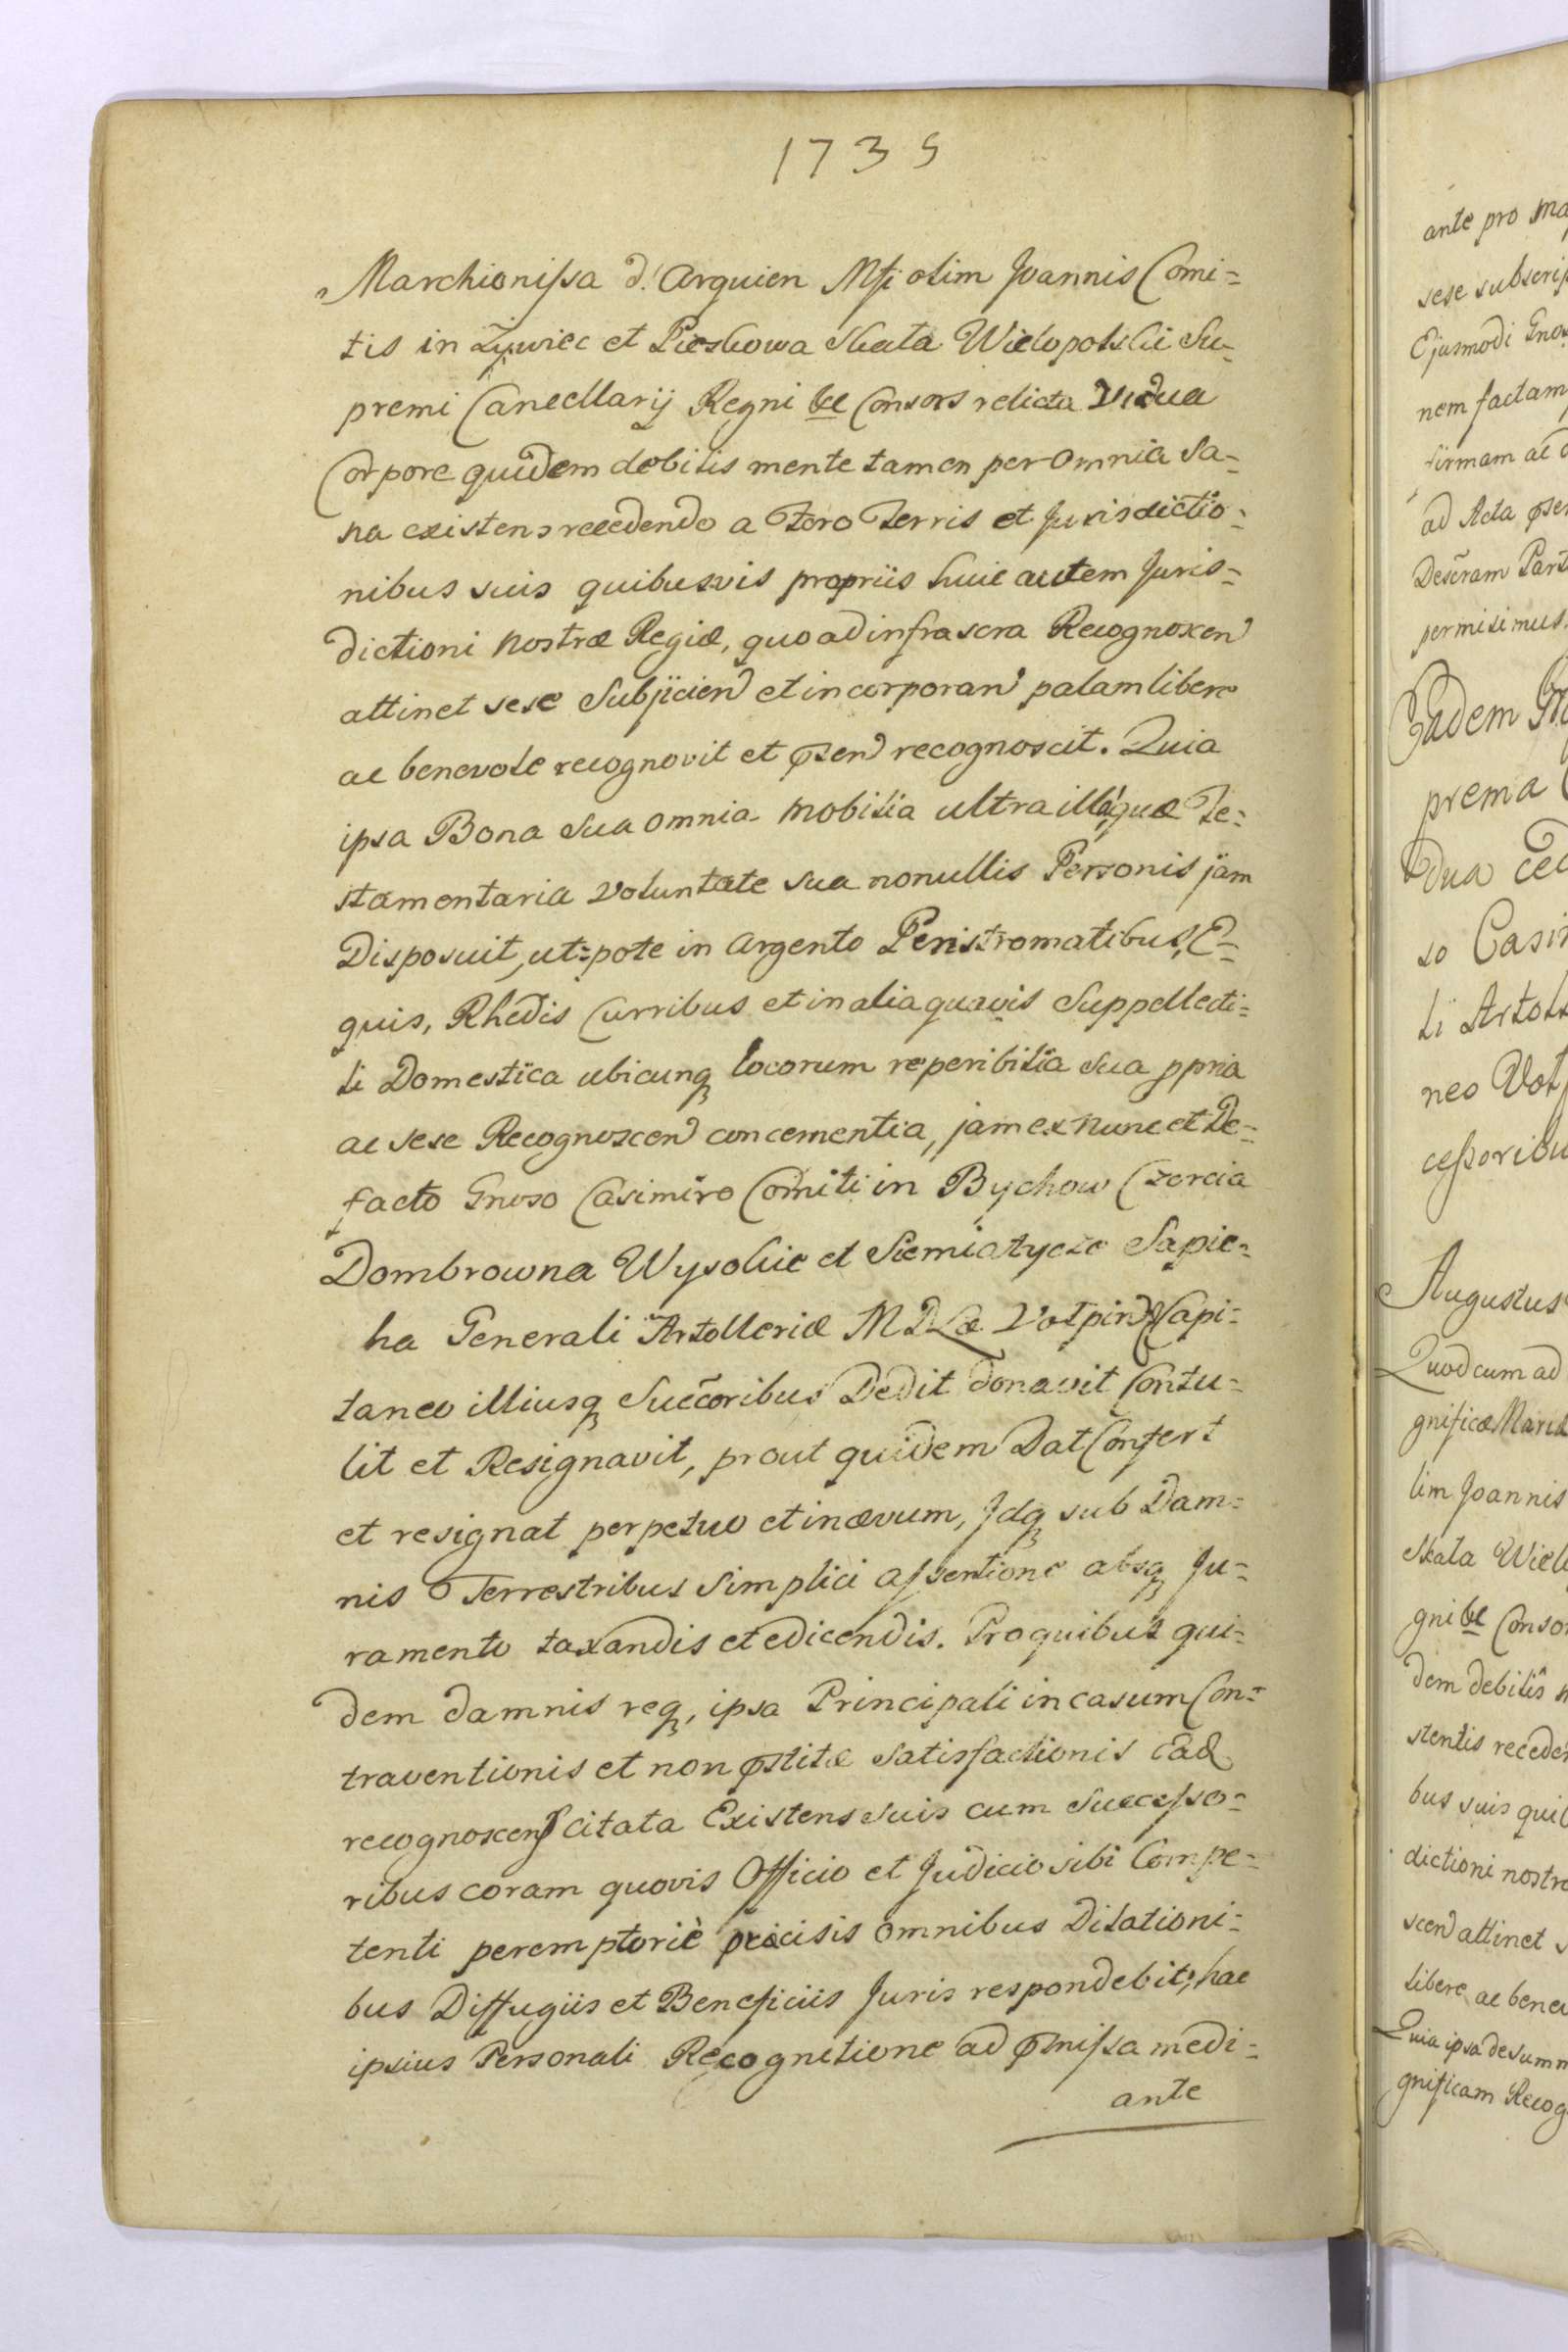 1735
Marchionissa d'Arquien Mfi olim Joannis Comi=
tis in Zywiec et Pieskowa Skała Wielopolski Su-
premi Cancellarij Regni &c Consors relicta Vidua
Corpore quidem debilis mente tamen per omnia Sa=
na existens recedendo a Foro Terris et Jurisdictio=
nibus suis quibusvis propriis huic autem Juris=
dictioni nostræ Regiæ, quo ad infrascra Recognoscen
attinet sese Subjicien et incorporan palam libere
ac benevole recognovit et pSen recognoscit. Quia
ipsa Bona Sua omnia mobilia ultra illa, quæ Te=
stamentaria voluntate sua nonullis Personis jam
Disposuit, ut=pote in Argento Peristromatibus, E=
quis, Rhedis Curribus et in alia quavis Suppellecti=
li Domestica ubicunq locorum reperibilia Sua ppria
ac sese Recognoscen concernentia, jam ex nunc et De=
facto Gnoso Casimiro Comiti in Bychow Czercia
Dombrowna Wysokie et Siemiatycze Sapie=
ha Generali Artolleriæ M D L Votpin Capi=
taneo illiusq Succoribus Dedit donavit Contu=
lit et Resignavit, prout quidem Dat Confert
et resignat perpetuo et in ævum, Idq sub Dam=
nis Terrestribus Simplici assertione absq Ju=
ramento taxandis et edicendis. Pro quibus qui=
dem damnis req, ipsa Principali in casum Con=
traventionis et non pstitæ Satisfactionis Ead
recognoscens citata Existens suis cum Successo=
ribus coram quovis Officio et Judicio sibi Compe=
tenti peremptoriè præcisis omnibus Dilationi=
bus Diffugiis et Beneficiis Juris respondebit, hac
ipsius Personali Recognitione ad pmissa medi=
ante
ante pro
sese
Ejusmodi
nem factam
firmam ac
ad Acta
Descram
permisimus
Eadem
prema
dua
so
li
neo

Augustus
Quod cum ad
gnificæ
lim Joannis
Skała
gni &c
dem debilis
stentis
bus suis
dictioni
scen attinet
libere ac
Quia ipsa de
gnificam